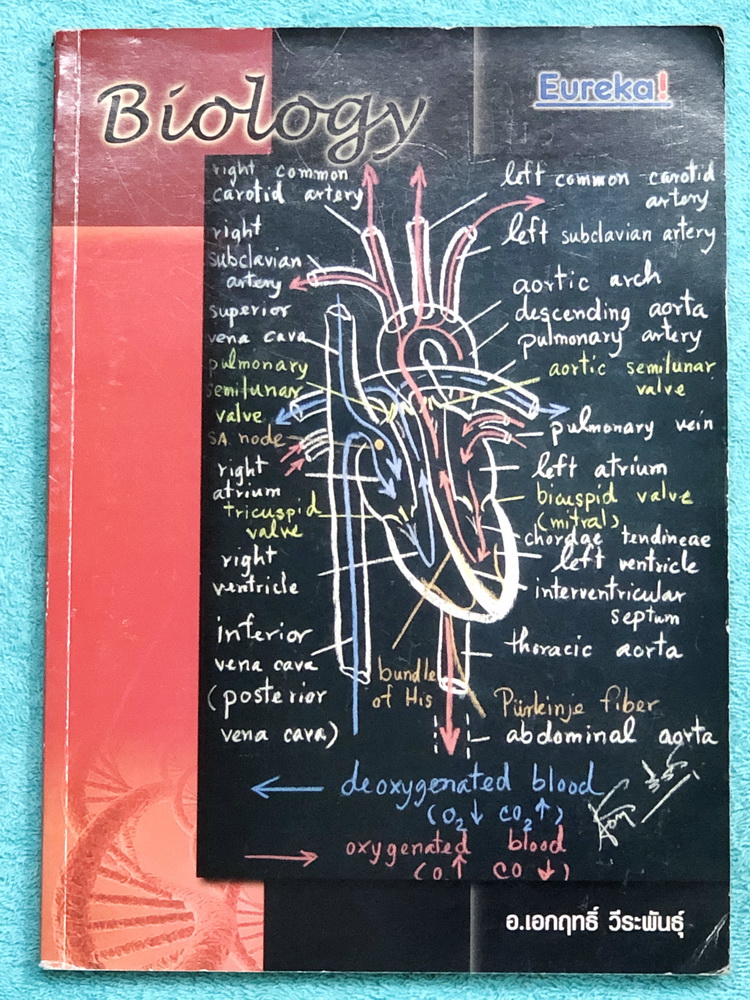 Biology
Eureka!
right common
carotid artery
right
subclavian
artery
superior
vena cava
pulmonary
semilunar
valve
SA node
right
atrium
tricuspid
valve
right
ventricle
inferior
vena cava
(posterior
vena cava)
left common carotid
artery
left subclavian artery
aortic arch
descending aorta
pulmonary artery
aortic semilunar
valve
pulmonary vein
left atrium
bicuspid valve
(mitral)
chordae tendineae
left ventricle
interventricular
septum
thoracic aorta
bundle
of His
Pürkinje fiber
abdominal aorta
deoxygenated blood
(O₂↓ CO₂↑)
oxygenated blood
(O↑ CO↓)
อ.เอกฤทธิ์ วีระพันธุ์